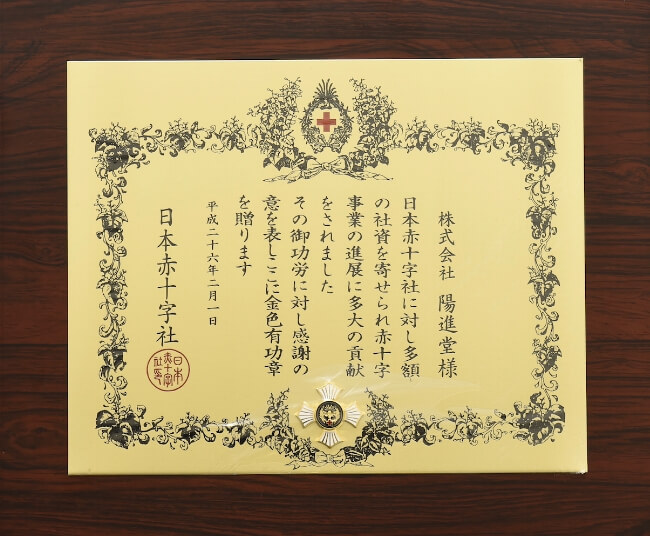 株式会社 陽進堂様
日本赤十字社に対し多額
の社資を寄せられ赤十字
事業の進展に多大の貢献
をされました
その御功労に対し感謝の
意を表しここに金色有功章
を贈ります
平成二十六年二月一日
日本赤十字社
日本
赤十字
社印